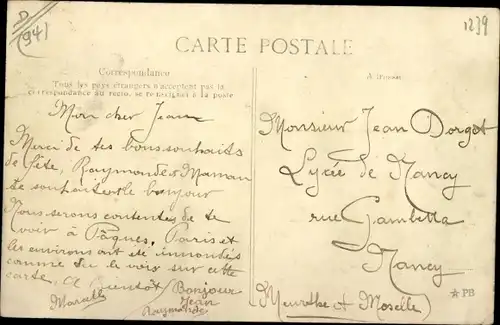 (94)
1239
CARTE POSTALE
Correspondance
Tous les pays étrangers n'acceptent pas la
correspondance au recto, se renseigner à la poste
Adresse
Mon cher Jean
Merci de tes bons souhaits
de fête, Raymonde et Maman
te souhaitent le bonjour
Nous serons contentes de te
voir à Pâques, Paris et
les environs ont été innondés
comme tu le vois sur cette
carte. A bientôt / Bonjour
Marcelle
Jean
Raymonde
Monsieur Jean Dorget
Lycée de Nancy
rue Gambetta
Nancy
(Meurthe et Moselle)
PB